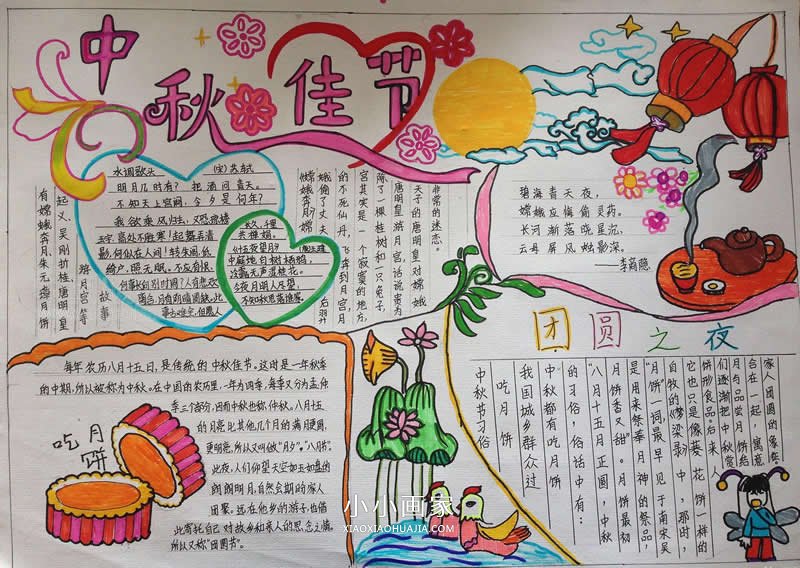 中秋佳节
水调歌头 (宋)苏轼
明月几时有？把酒问青天。
不知天上宫阙，今夕是何年？
我欲乘风归去，又恐琼楼
玉宇，高处不胜寒！起舞弄清
影，何似在人间！转朱阁，低
绮户，照无眠。不应有恨，
何事长向别时圆？人有悲欢
离合，月有阴晴圆缺，此
事古难全。但愿人
长久，千里
共婵娟。
《十五夜望月》
中庭地白树栖鸦，
冷露无声湿桂花。
今夜月明人尽望，
不知秋思落谁家。
起义、吴刚折桂、唐明皇
有嫦娥奔月、朱元璋月饼
踏月宫等
故事
非常的迷恋。
天子的唐明皇对嫦娥
唐明皇踏月宫，话说贵为
除了一棵桂树和一只兔子，
宫其实是一个寂寞的地方，
的不死仙丹，飞奔到月宫，月
嫦娥偷了丈夫后羿
《嫦娥奔月》
碧海青天夜，
嫦娥应悔偷灵药。
长河渐落晓星沉，
云母屏风烛影深。
李商隐
团圆之夜
每年农历八月十五日，是传统的中秋佳节。这时是一年秋季
的中期，所以被称为中秋。在中国的农历里，一年分为四季，每季又分为孟仲
季三个部分，因而中秋也称仲秋。八月十五
的月亮比其他几个月的满月更圆，
更明亮，所以又叫做"月夕"。"八月节"。
此夜，人们仰望天空如玉如盘的
朗朗明月，自然会期盼家人
团聚。远在他乡的游子，也借
此寄托自己对故乡和亲人的思念之情。
所以又称"团圆节"。
吃月饼
中秋节习俗
吃月饼
我国城乡群众过
中秋都有吃月饼
的习俗，俗话中有：
"八月十五月正圆，中秋
月饼香又甜"。月饼最初
是用来祭奉月神的祭品，
"月饼"一词，最早见于南宋吴
自牧的《梦粱录》中，那时，
它也只是像菱花饼一样的
饼形食品。后来人
们逐渐把中秋赏
月与品尝月饼结
合在一起，寓意
家人团圆的象征
小小画家
XIAOXIAOHUAJIA.COM